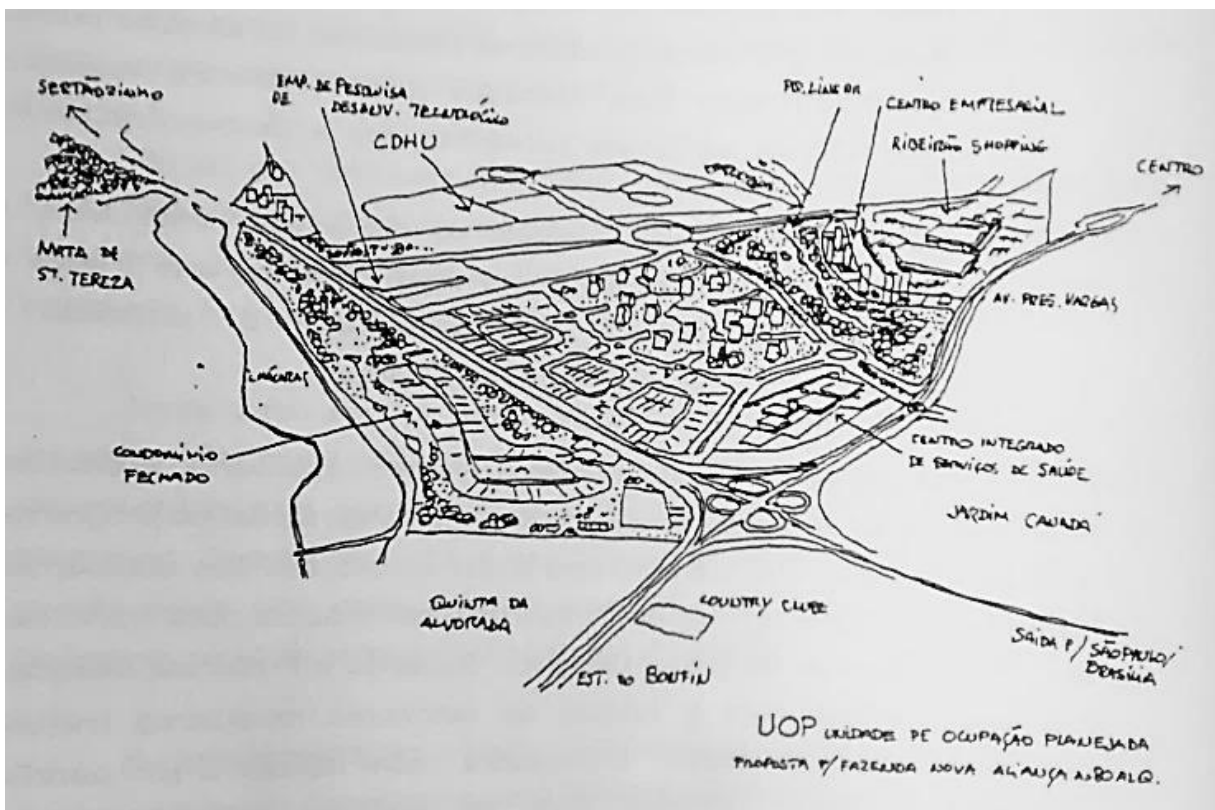 SERTÃOZINHO
EMP. DE PESQUISA
DE DESENV. TECNOLÓGICO
CDHU
PQ. LINEAR
CENTRO EMPRESARIAL
RIBEIRÃO SHOPPING
CENTRO
MATA DE
ST. TEREZA
AV. PRES. VARGAS
CHÁCARAS
CONDOMÍNIO
FECHADO
CENTRO INTEGRADO
DE SERVIÇOS DE SAÚDE
JARDIM CANADÁ
QUINTA DA
ALVORADA
COUNTRY CLUBE
EST. DO BONFIN
SAÍDA P/ SÃO PAULO/
BRASÍLIA
UOP UNIDADE DE OCUPAÇÃO PLANEJADA
PROPOSTA P/ FAZENDA NOVA ALIANÇA